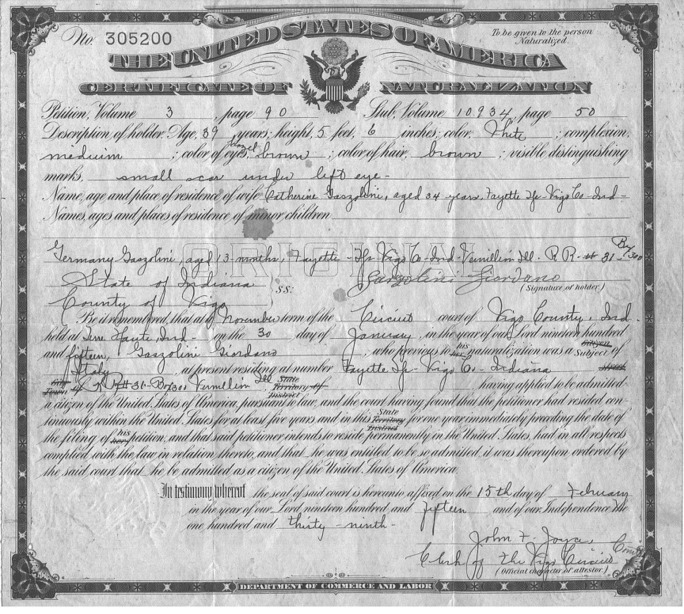 No. 305200
To be given to the person Naturalized.
THE UNITED STATES OF AMERICA
CERTIFICATE OF NATURALIZATION
Petition, Volume 3, page 90 Stub, Volume 10934, page 50
Description of holder: Age, 39 years; height, 5 feet, 6 inches; color, White; complexion,
medium; color of eyes, brown; color of hair, brown; visible distinguishing
marks, small scar under left eye-
Name, age and place of residence of wife Catherine Gaszolini, aged 34 years, Fayette Tp-Vigo Co-Ind-
Names, ages and places of residence of minor children
ORIGINAL
Germany Gaszolini, aged 13 months, Fayette-Tp-Vigo Co-Ind-Vermillin Ill. R R-#31-Box 30
State of Indiana
County of Vigo
S.S:
Gaszolini Giordano
(Signature of holder.)
Be it remembered, that at a November term of the Circuit court of Vigo County, Ind.
held at Terre Haute, Ind. on the 30 day of January, in the year of our Lord nineteen hundred
and fifteen, Gaszolini Giordano, who previous to his naturalization was a citizen subject of
Italy, at present residing at number Fayette Tp-Vigo Co-Indiana
R R #31-Box 30, Vermillin Ill State Territory of District having applied to be admitted
a citizen of the United States of America, pursuant to law, and the court having found that the petitioner had resided con-
tinuously within the United States for at least five years and in this State Territory District for one year immediately preceding the date of
the filing of his petition, and that said petitioner intends to reside permanently in the United States, had in all respects
complied with the law in relation thereto, and that he was entitled to be so admitted, it was thereupon ordered by
the said court that he be admitted as a citizen of the United States of America.
In testimony whereof the seal of said court is hereunto affixed on the 15th day of February
in the year of our Lord nineteen hundred and fifteen and of our Independence the
one hundred and thirty-ninth-
John F. Joyce
Clerk of the Vigo Circuit Court
(Official character of attestor.)
DEPARTMENT OF COMMERCE AND LABOR